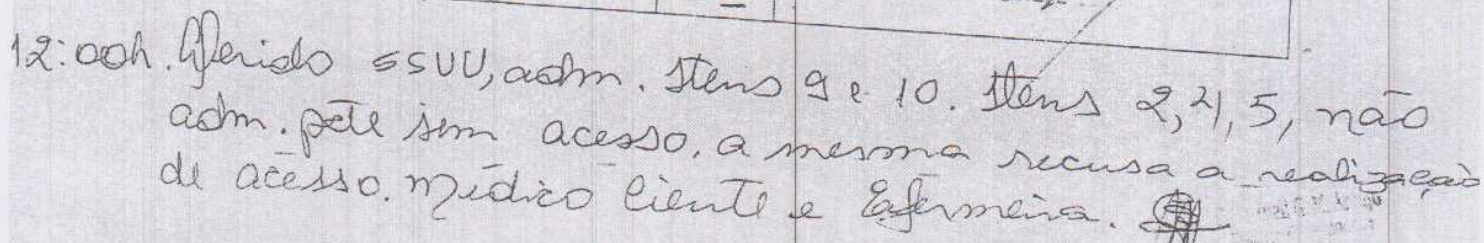 12:00h. Aferido SSVV, adm. Itens 9 e 10. Itens 2, 4, 5, não
adm. pcte sem acesso, a mesma recusa a realização
de acesso. Médico ciente e Efermeira.